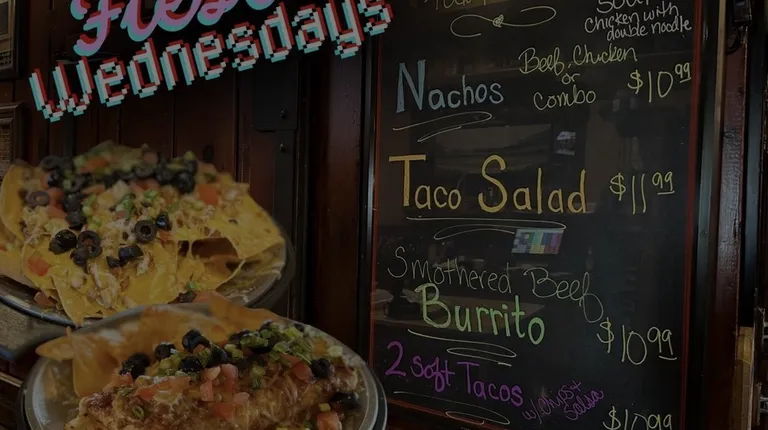 Wednesdays
Soup
Chicken with
double noodle
Nachos
Beef, Chicken
or
combo
$10.99
Taco Salad
$11.99
Smothered Beef
Burrito
$10.99
2 soft Tacos
w/ chips +
Salsa
$10.99